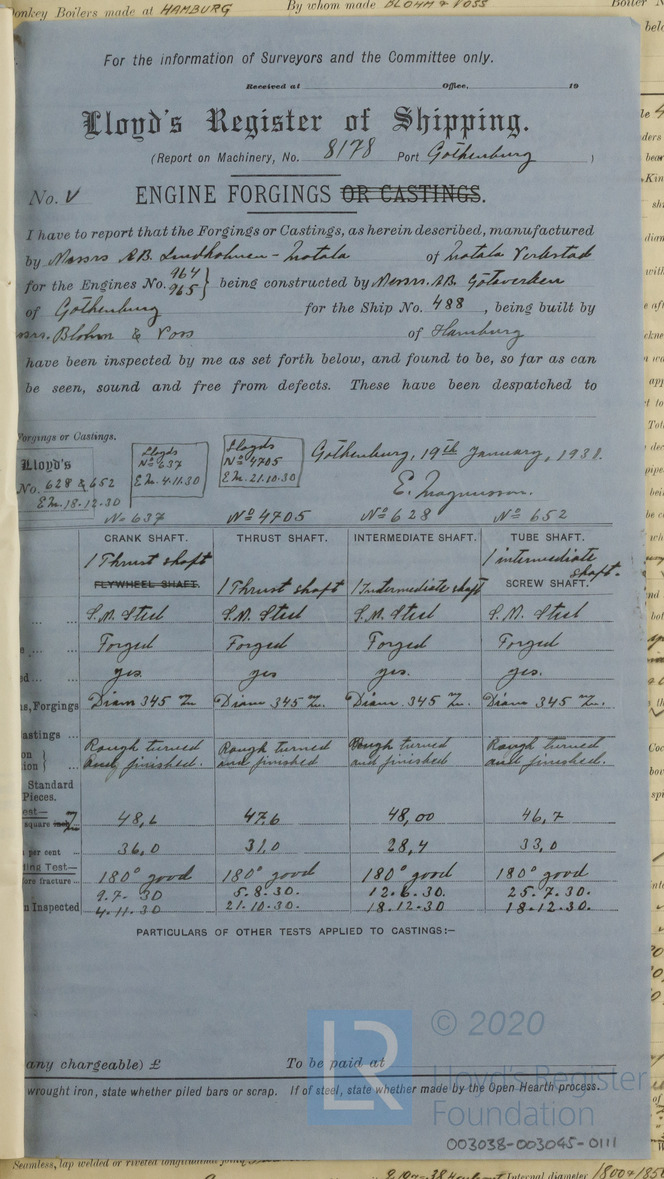 Donkey Boilers made at HAMBURG By whom made BLOHM & VOSS Boiler
For the information of Surveyors and the Committee only.
Received at Office, 19
Lloyd's Register of Shipping.
(Report on Machinery, No. 8178 Port Gothenburg )
No. V ENGINE FORGINGS OR CASTINGS.
I have to report that the Forgings or Castings, as herein described, manufactured
by Messrs AB. Lindholmen-Motala of Motala Verkstad
for the Engines No. 964 965 } being constructed by Messrs. AB. Götaverken
of Gothenburg for the Ship No. 488, being built by
Blohm & Voss of Hamburg
have been inspected by me as set forth below, and found to be, so far as can
be seen, sound and free from defects. These have been despatched to
Forgings or Castings.
Lloyd's
No. 628 & 652
E.M. 18-12-30
Lloyds
No 637
E.M. 4.11.30
Lloyds
No 4705
E.M. 21.10.30
Gothenburg, 19th January, 1931.
E. Magnusson.
No 637 No 4705 No 628 No 652
CRANK SHAFT. THRUST SHAFT. INTERMEDIATE SHAFT. TUBE SHAFT.
1 Thrust shaft 1 intermediate shaft.
FLYWHEEL SHAFT. 1 Thrust shaft 1 Intermediate shaft SCREW SHAFT.
S.M. Steel S.M. Steel S.M. Steel S.M. Steel
Forged Forged Forged Forged
yes. yes yes. yes.
Forgings Diam 345 m/m Diam. 345 m/m. Diam. 345 m/m. Diam. 345 m/m.
Castings
Rough turned Rough turned Rough turned Rough turned
and finished. and finished and finished and finished.
Standard
Pieces.
square inch 48,6 47,6 48,00 46,7
per cent 36,0 31,0 28,4 33,0
Test—
before fracture 180° good 180° good 180° good 180° good
9.7.30 5.8.30. 12.6.30. 25.7.30.
Inspected 4.11.30 21.10.30 18.12.30 18.12.30.
PARTICULARS OF OTHER TESTS APPLIED TO CASTINGS:—
© 2020
any chargeable) £ To be paid at
wrought iron, state whether piled bars or scrap. If of steel, state whether made by the Open Hearth process.
LR Lloyd's Register
Foundation
003038-003045-0111
Seamless, lap welded or riveted longitudinal joint Internal diameter 1800 & 1850